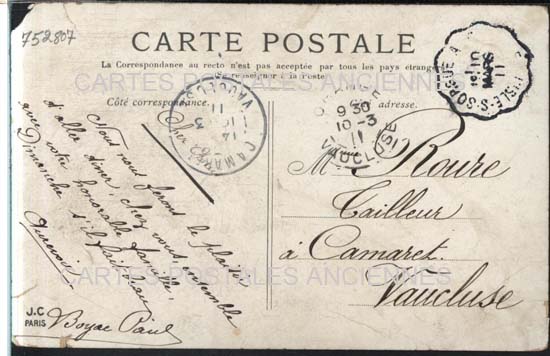 752807
CARTE POSTALE
La Correspondance au recto n'est pas acceptée par tous les pays étrangers
se renseigner à la Poste.
CARTES POSTALES ANCIENNES
Côté correspondance.
adresse.
CAMARET
VAUCLUSE
9 30
10-3
11
VAUCLUSE
ISLE-S-SORGUE
MARS
11
Cher
Nous nous ferons le plaisir
d'aller diner chez vous ensemble
avec votre honorable famille,
Dimanche s'il fait beau
Aurevoir
Boyac Paul
M. Roure
Tailleur
à Camaret.
Vaucluse
CARTES POSTALES ANCIENNES
J.C
PARIS